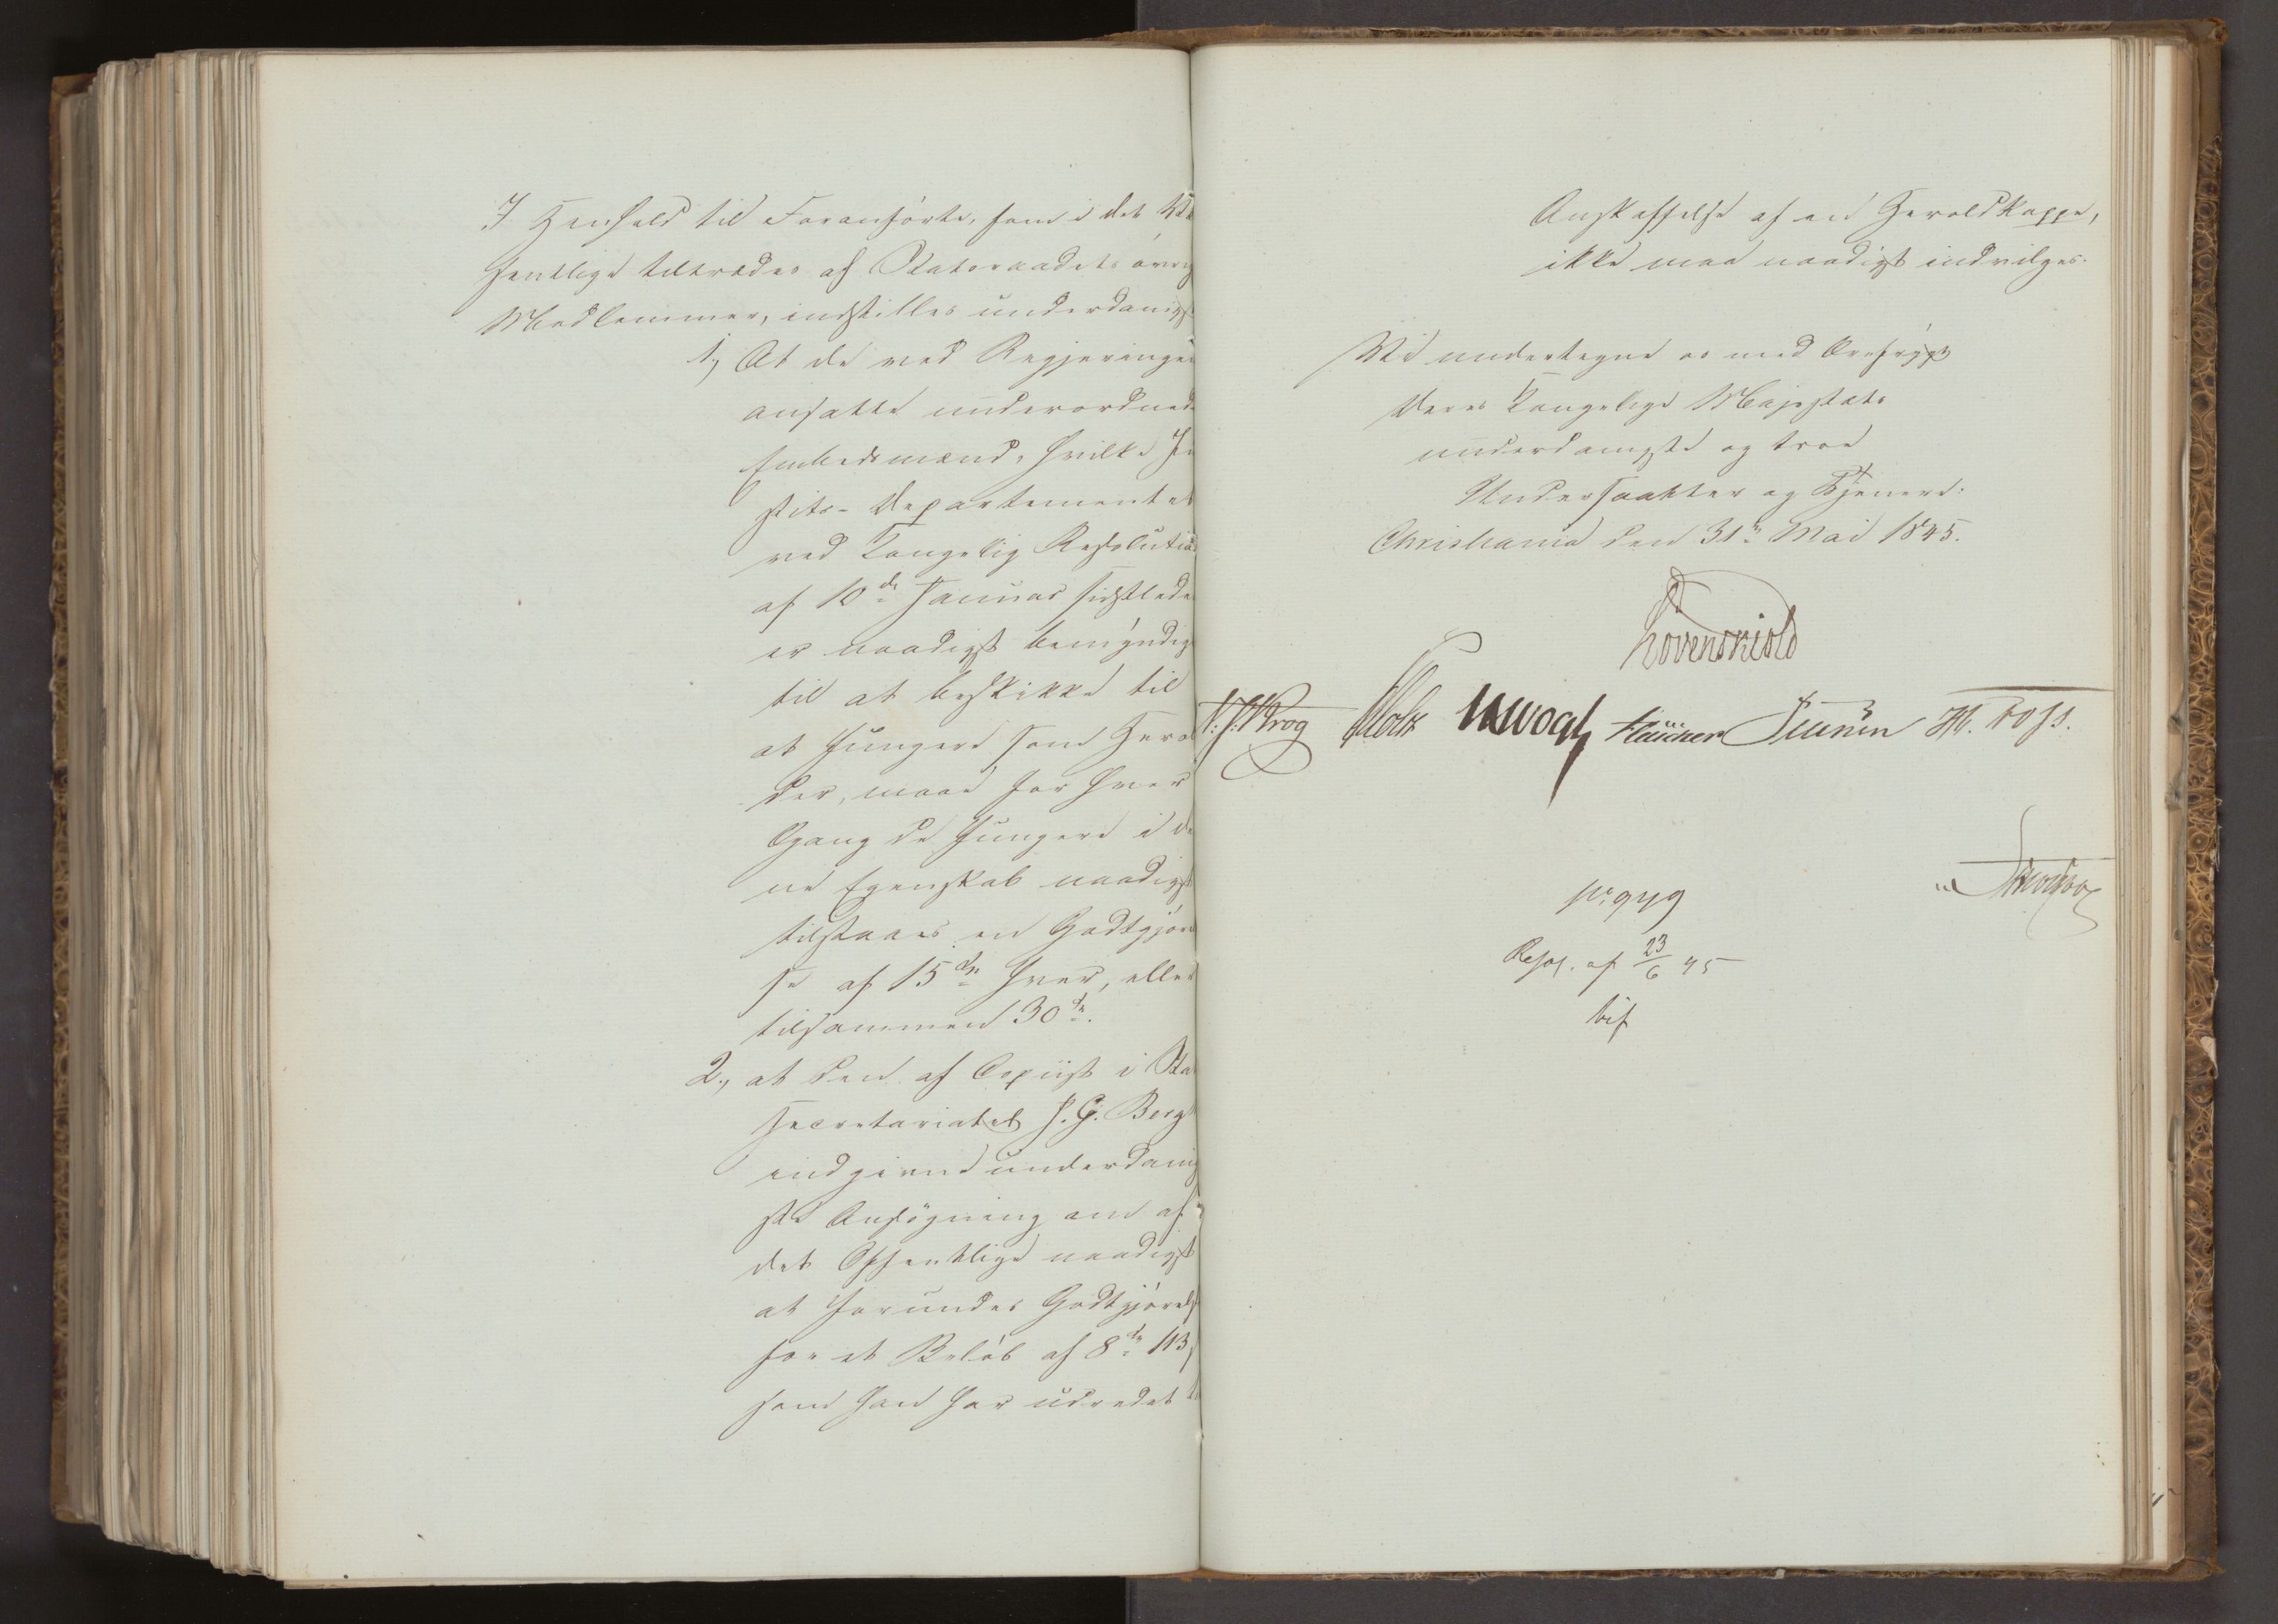 I Henhold til Foranførte, som i det Væ
sentlige tiltrædes af Statsraadets øvrig
Medlemmer, indstilles underdanigst
1, At de ved Regjeringen
ansatte underordnede
Embedsmænd, hvilke Ju
stits-Departementet
ved Kongelig Resolution
af 10de Januar sidstleden
er naadigst bemyndiget
til at beskikke til
at fungere som Herol
der, maae for hver
Gang de fungere i den
ne Egenskab naadigst
tilstaaes en Godtgjørel
se af 15 Sp hver, eller
tilsammen 30 Sp.
2, at den af Copiist i Stats
Secretariatet J. G. Berg
indgivne underdanig
ste Ansøgning om af
det Offentlige naadigst
at forundes Godtgjørelse
for et Beløb af 8 Sp 113
som han har udredet t
Anskaffelse af en Heroldkappe,
ikke maa naadigst indvilges.
Vi undertegne os med Ærefrygt
Deres Kongelige Majestæts
underdanigste og troe
Undersaatter og Tjenere.
Christiania den 31te Mai 1845.
Løvenskiold
Krog Vogt Sibbern H. Foss.
No 949
Resol. af 23/6 45
bif